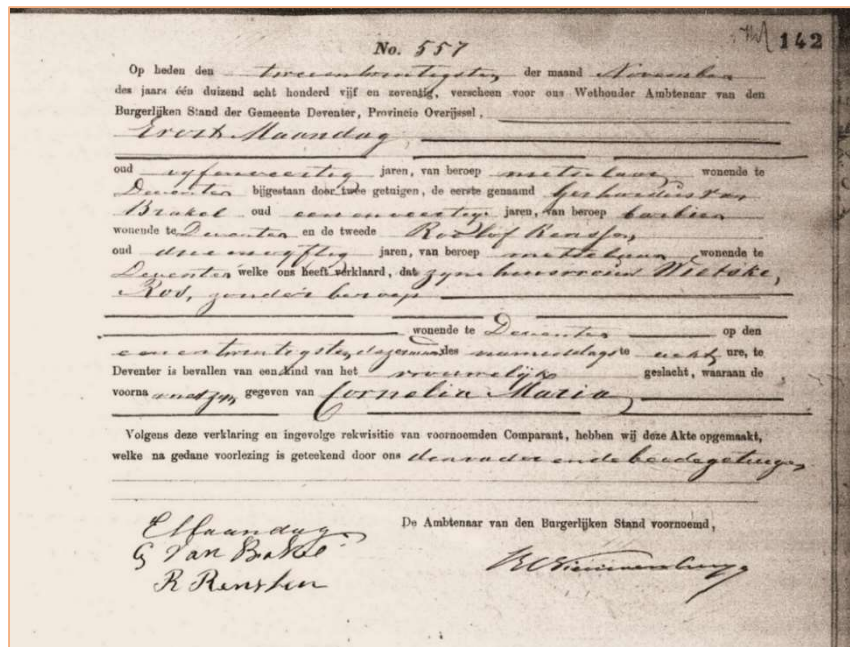 142
No. 557
Op heden den tweeentwintigsten der maand November
des jaars één duizend acht honderd vijf en zeventig, verscheen voor ons Wethouder Ambtenaar van den
Burgerlijken Stand der Gemeente Deventer, Provincie Overijssel,
Evert Maandag
oud vyfenveertig jaren, van beroep metselaar wonende te
Deventer bijgestaan door twee getuigen, de eerste genaamd Gerhardus van
Brakel oud eenenveertig jaren, van beroep barbier
wonende te Deventer en de tweede Roelof Renssen,
oud drieenvyftig jaren, van beroep metselaar wonende te
Deventer welke ons heeft verklaard, dat zyne huisvrouw Wietske,
Ros, zonder beroep
wonende te Deventer op den
eenentwintigsten dezer maand des namiddags te acht ure, te
Deventer is bevallen van een kind van het vrouwelijk geslacht, waaraan de
voorna gegeven van Cornelia Maria
Volgens deze verklaring en ingevolge rekwisitie van voornoemden Comparant, hebben wij deze Akte opgemaakt,
welke na gedane voorlezing is geteekend door ons den vader en de beede getuigen
De Ambtenaar van den Burgerlijken Stand voornoemd,
E Maandag
G Van Brakel
R Renssen